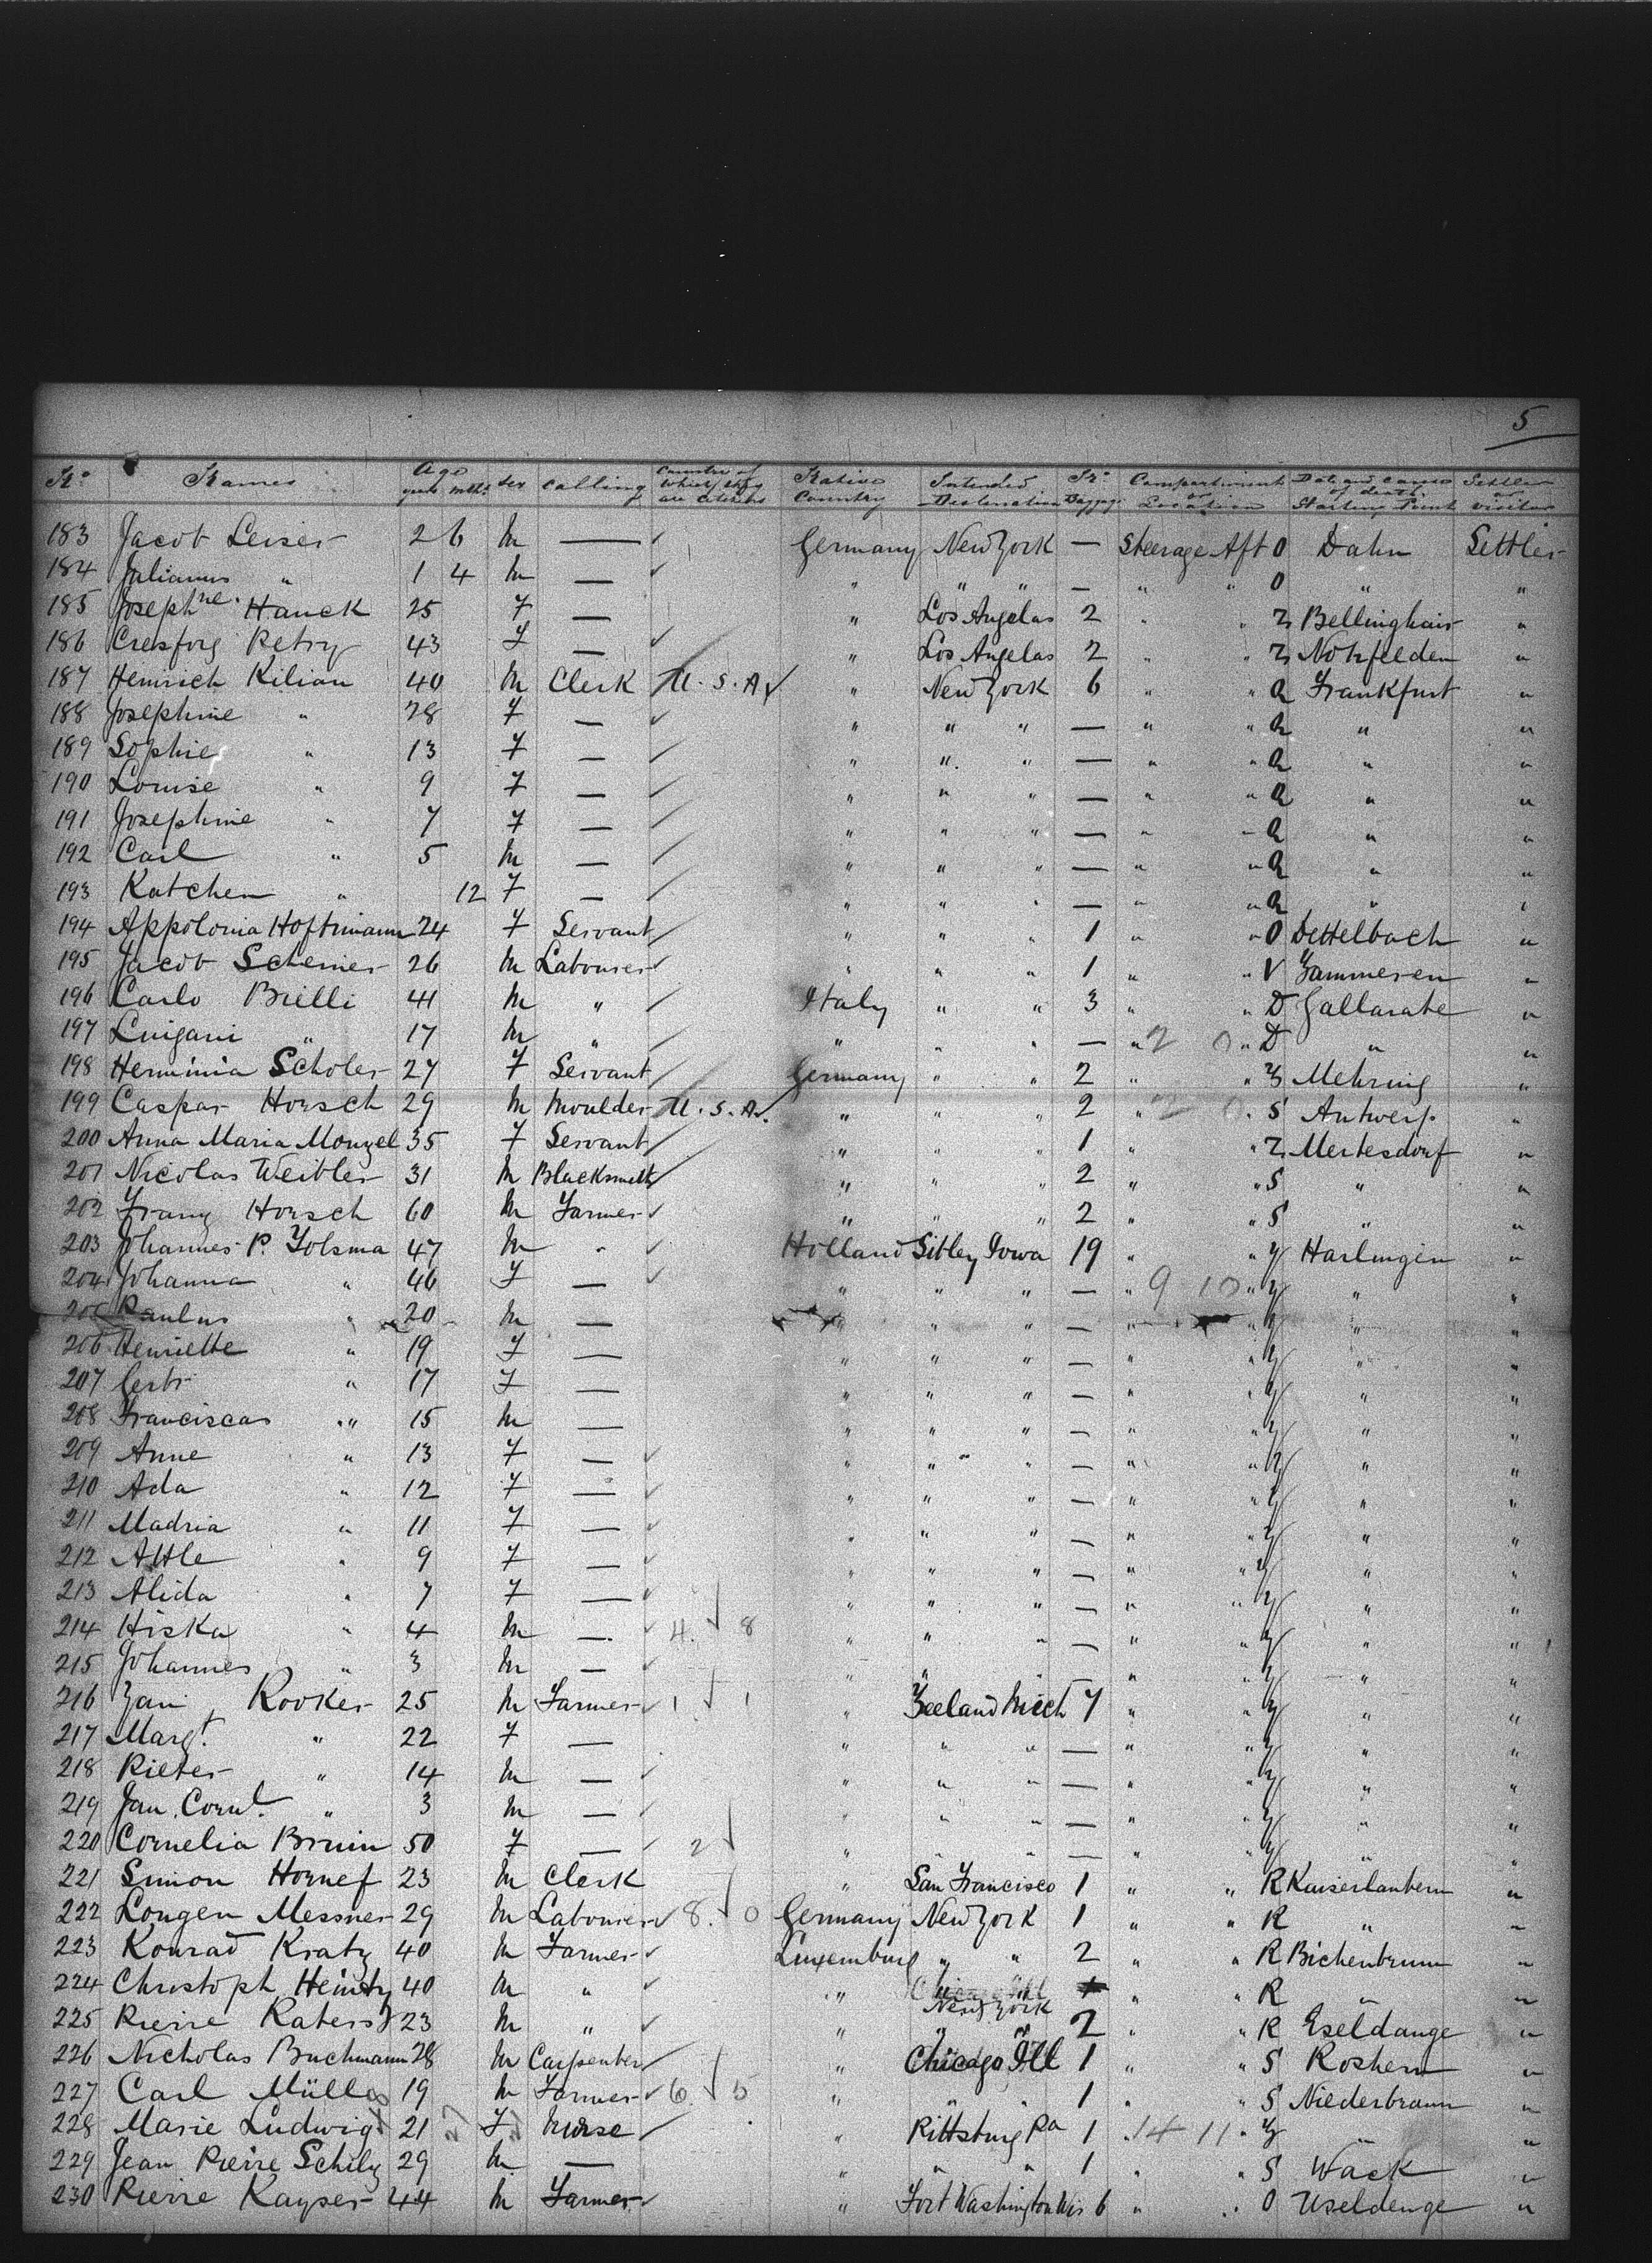 5
No. Names Age years mths. sex calling Countrie of which they are citizens Native Country Intended Destination No. Baggage Compartment or Location Date and cause of death. Starting Point Settler or visitor
183 Jacob Leiser 2 6 M — Germany New York — Steerage Aft O Dahn Settler
184 Julianus " 1 4 M — " " " — " " O " "
185 Josephne. Hauck 25 F — " Los Angelas 2 " " Z "
186 Petry 43 F — " Los Angelas 2 " " Z Nohfelden "
187 Heinrich Kilian 40 M Clerk U.S.A. " New York 6 " " Q Frankfurt "
188 Josephine " 28 F — " " " — " " Q " "
189 Sophie " 13 F — " " " — " " Q " "
190 Louise " 9 F — " " " — " " Q " "
191 Josephine " 7 F — " " " — " " Q " "
192 Carl " 5 M — " " " — " " Q " "
193 Katchen " 12 F — " " " — " " Q " "
194 Appolonia Hoffmann 24 F Servant " " " 1 " " O Dettelbach "
195 Jacob Scherner 26 M Labourer " " " 1 " " V "
196 Carlo Brielli 41 M " Italy " " 3 " " D Gallarate "
197 Luigani " 17 M " " " " — " 2 0 " D " "
198 Herminia Scholer 27 F Servant Germany " " 2 " " Y Mehring "
199 Caspar Horsch 29 M Moulder U.S.A. " " " 2 " " S Antwerp "
200 Anna Maria Monzel 35 F Servant " " " 1 " " Z Mertesdorf "
201 Nicolas Weibler 31 M Blacksmith " " " 2 " " S " "
202 Franz Horsch 60 M Farmer " " " 2 " " S " "
203 Johannes P. Yolsma 47 M " Holland Sibley Iowa 19 " " Y Harlingen "
204 Johanna " 46 F — " " " — " 9 10 " Y " "
205 Paulus " 20 M — " " " — " " Y " "
206 Henriette " 19 F — " " " — " " Y " "
207 Gertr " 17 F — " " " — " " Y " "
208 Franciscas " 15 M — " " " — " " Y " "
209 Anne " 13 F — " " " — " " Y " "
210 Ada " 12 F — " " " — " " Y " "
211 Madria " 11 F — " " " — " " Y " "
212 Attle " 9 F — " " " — " " Y " "
213 Alida " 7 F — " " " — " " Y " "
214 Hiska " 4 M — 4. 8 " " " — " " Y " "
215 Johannes " 3 M — " " " — " " Y " "
216 Zani Rooker 25 M Farmer 1 1 " Zeeland Mich 7 " " Y " "
217 Margt. " 22 F — " " " — " " Y " "
218 Pieter " 14 M — " " " — " " Y " "
219 Jan Cornl. " 3 M — " " " — " " Y " "
220 Cornelia Bruin 50 F — 2 " " " — " " Y " "
221 Simon Hornef 23 M Clerk " San Francisco 1 " " R Kaiserlautern "
222 Longen Messner 29 M Labourer 8. 0 Germany New York 1 " " R " "
223 Konrad Kratz 40 M Farmer Luxemburg " " 2 " " R Bichenbrunn "
224 Christoph Heintz 40 M " " New York " " R " "
225 Pierre Raters 23 M " " " " 2 " " R Eseldange "
226 Nicholas Buchmann 28 M Carpenter " Chicago Ill 1 " " S Roshern "
227 Carl Müller 19 M Farmer 6. 5 " " " 1 " " S Niederbraun "
228 Marie Ludwig 21 F Nurse " Pittsburg Pa 1 " 14 11 " Y " "
229 Jean Pierre Schily 29 M — " " " 1 " " S Wack "
230 Pierre Kayser 44 M Farmer " Fort Washington Wis 6 " " O Useldenge "